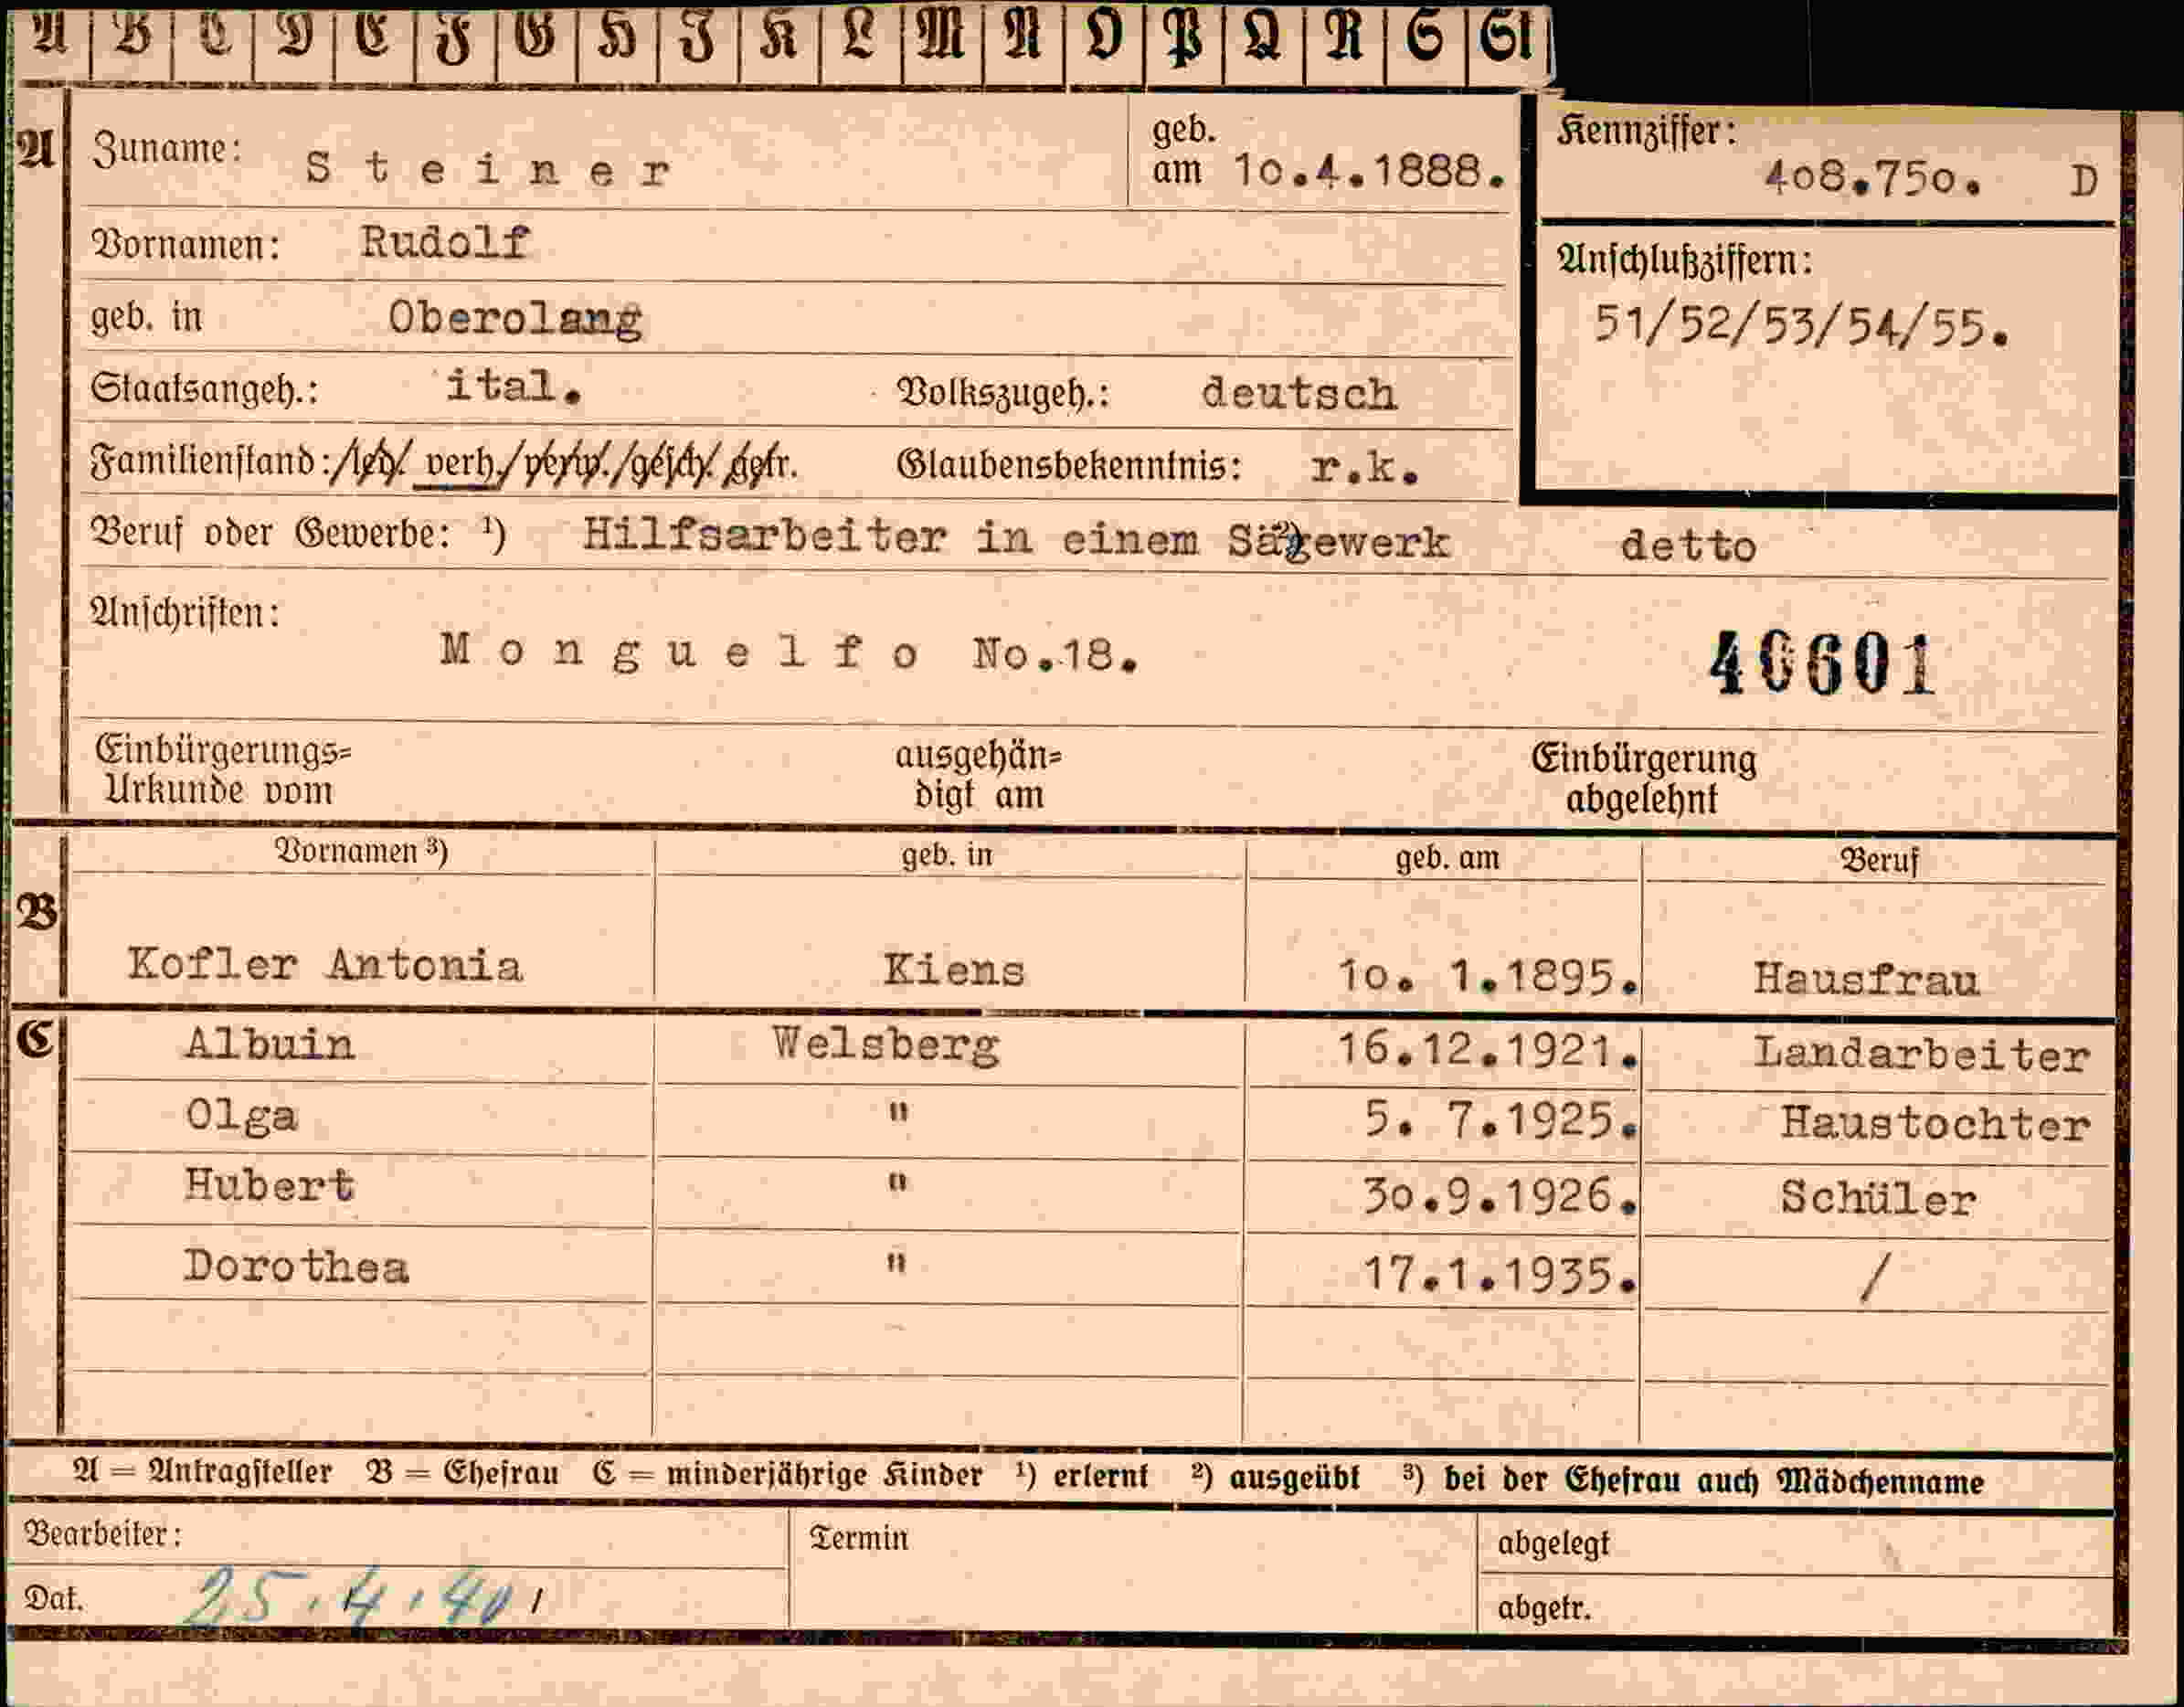 A B C D E F G H I K L M N O P Q R S St
A Zuname: Steiner geb. am 10.4.1888. Kennziffer: 408.750. D
Vornamen: Rudolf
Anschlußziffern:
geb. in Oberolang 51/52/53/54/55.
Staatsangeh.: ital. Volkszugeh.: deutsch
Familienstand: /led./ verh./verw./gesch./getr. Glaubensbekenntnis: r.k.
Beruf oder Gewerbe: ¹) Hilfsarbeiter in einem Sägewerk detto
Anschriften:
Monguelfo No.18. 40601
Einbürgerungs= ausgehän= Einbürgerung
Urkunde vom digt am abgelehnt
Vornamen ³) geb. in geb. am Beruf
B
Kofler Antonia Kiens 10. 1.1895. Hausfrau
C Albuin Welsberg 16.12.1921. Landarbeiter
Olga " 5. 7.1925. Haustochter
Hubert " 30.9.1926. Schüler
Dorothea " 17.1.1935. /
A = Antragsteller B = Ehefrau C = minderjährige Kinder ¹) erlernt ²) ausgeübt ³) bei der Ehefrau auch Mädchenname
Bearbeiter: Termin abgelegt
Dat. 25.4.40 abgetr.